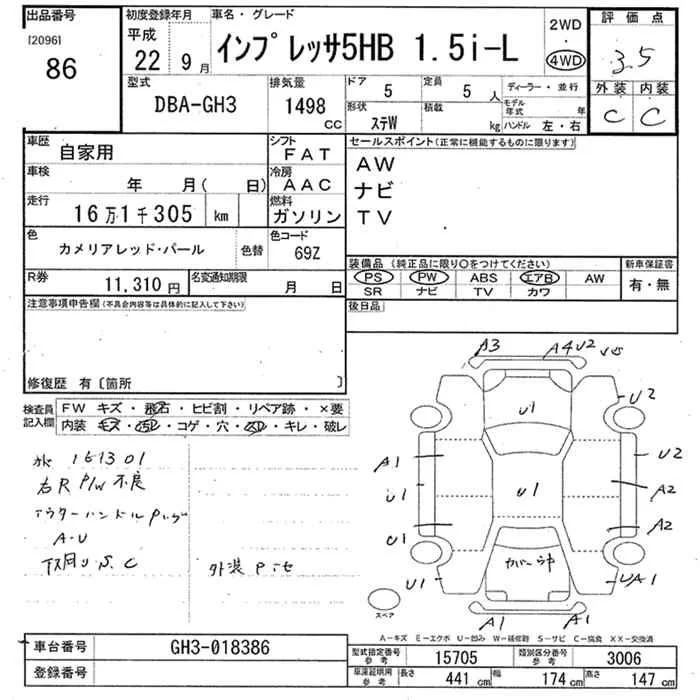 出品番号
[2096]
86
初度登録年月
平成
22年 9月
車名・グレード
インプレッサ5HB 1.5i-L
2WD
・
4WD
評価点
3.5
外装 内装
C C
型式
DBA-GH3
排気量
1498
CC
ドア
5
定員
5人
形状
ステW
積載
kg
ディーラー・並行
モデル年式 年
ハンドル 左・右
車歴
自家用
シフト
FAT
車検
年 月( 日)
冷房
AAC
走行
16万1千305 km
燃料
ガソリン
色
カメリアレッド・パール
色替
色コード
69Z
R券
11,310円
名変通知期限
月 日
セールスポイント(正常に機能するものに限ります)
AW
ナビ
TV
装備品 (純正品に限り○をつけてください)
PS PW ABS エアB AW
SR ナビ TV カワ
新車保証書
有・無
後日品
注意事項申告欄(不具合内容等は具体的に記入して下さい)
修復歴 有〔箇所 〕
検査員記入欄
FW キズ・飛石・ヒビ割・リペア跡・×要
内装 キズ・汚レ・コゲ・穴・スレ・キレ・破レ
161301
右R P/W 不良
アウターハンドル
A.U
下回り S.C
外装
A3
A4 U2
U1
U2
A1
U2
U1
U1
A2
A2
U1
カバー
U1
UA1
スペア
A1
A1
A-キズ E-エクボ U-凹み W-補修跡 S-サビ C-腐食 XX-交換済
車台番号
GH3-018386
登録番号
型式指定番号
参考
15705
類別区分番号
参考
3006
車庫証明用
参考
長さ
441 cm
幅
174 cm
高さ
147 cm